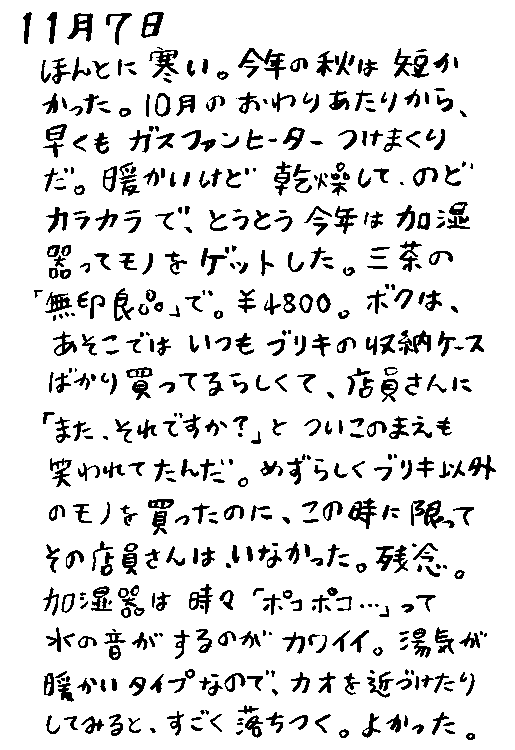 11月7日
ほんとに 寒い。今年の秋は 短か
かった。10月の おわりあたりから、
早くも ガスファンヒーター つけまくり
だ。暖かいけど 乾燥して、のど
カラカラで、とうとう 今年は 加湿
器ってモノを ゲットした。三茶の
「無印良品」で。¥4800。ボクは、
あそこでは いつも ブリキの 収納ケース
ばかり 買ってるらしくて、店員さんに
「また、それですか?」と ついこのまえも
笑われてたんだ。めずらしく ブリキ以外
のモノを 買ったのに、この時に 限って
その店員さんは、いなかった。残念。
加湿器は 時々「ポコポコ…」って
水の音が するのが カワイイ。湯気が
暖かいタイプなので、カオを近づけたり
してみると、すごく 落ちつく。よかった。